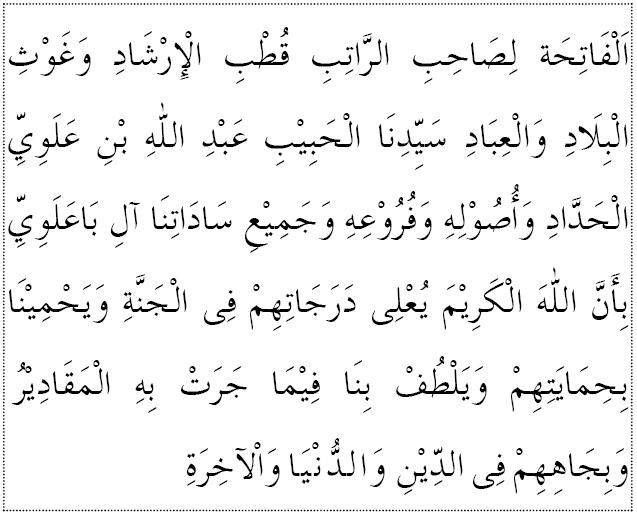 اَلْفَاتِحَة لِصَاحِبِ الرَّاتِبِ قُطْبِ الْإِرْشَادِ وَغَوْثِ
الْبِلَادِ وَالْعِبَادِ سَيِّدِنَا الْحَبِيْبِ عَبْدِ اللهِ بْنِ عَلَوِيِّ
الْحَدَّادِ وَأُصُوْلِهِ وَفُرُوْعِهِ وَجَمِيْعِ سَادَاتِنَا آلِ بَاعَلَوِيِّ
بِأَنَّ اللهَ الْكَرِيْمَ يُعْلِى دَرَجَاتِهِمْ فِى الْجَنَّةِ وَيَحْمِيْنَا
بِحِمَايَتِهِمْ وَيَلْطُفْ بِنَا فِيْمَا جَرَتْ بِهِ الْمَقَادِيْرُ
وَبِجَاهِهِمْ فِى الدِّيْنِ وَالدُّنْيَا وَالْآخِرَةِ